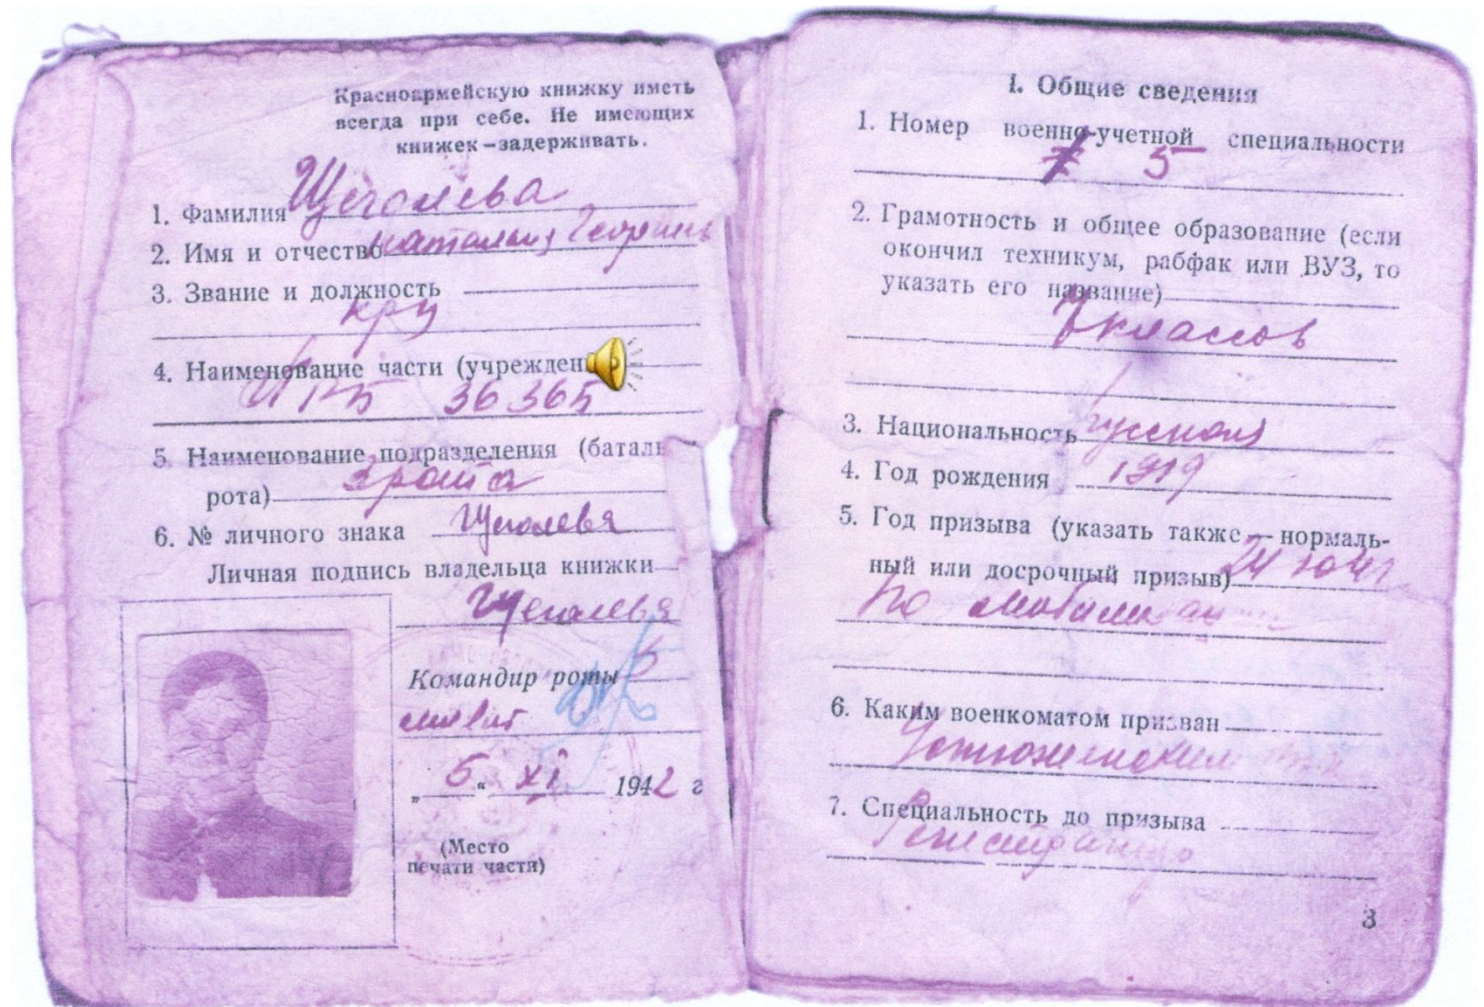 Красноармейскую книжку иметь
всегда при себе. Не имеющих
книжек – задерживать.
1. Фамилия Щеголева
2. Имя и отчество
3. Звание и должность
крц
4. Наименование части (учрежден
36365
5. Наименование подразделения (баталь
рота) рота
6. № личного знака Щеголева
Личная подпись владельца книжки
Щеголева
Командир роты
„ 5 “ XI 1942 г
(Место
печати части)
I. Общие сведения
1. Номер военно-учетной специальности
5
2. Грамотность и общее образование (если
окончил техникум, рабфак или ВУЗ, то
указать его название)
7 классов
3. Национальность русская
4. Год рождения 1919
5. Год призыва (указать также — нормаль-
ный или досрочный призыв)
по
6. Каким военкоматом призван
Устюженским
7. Специальность до призыва
3